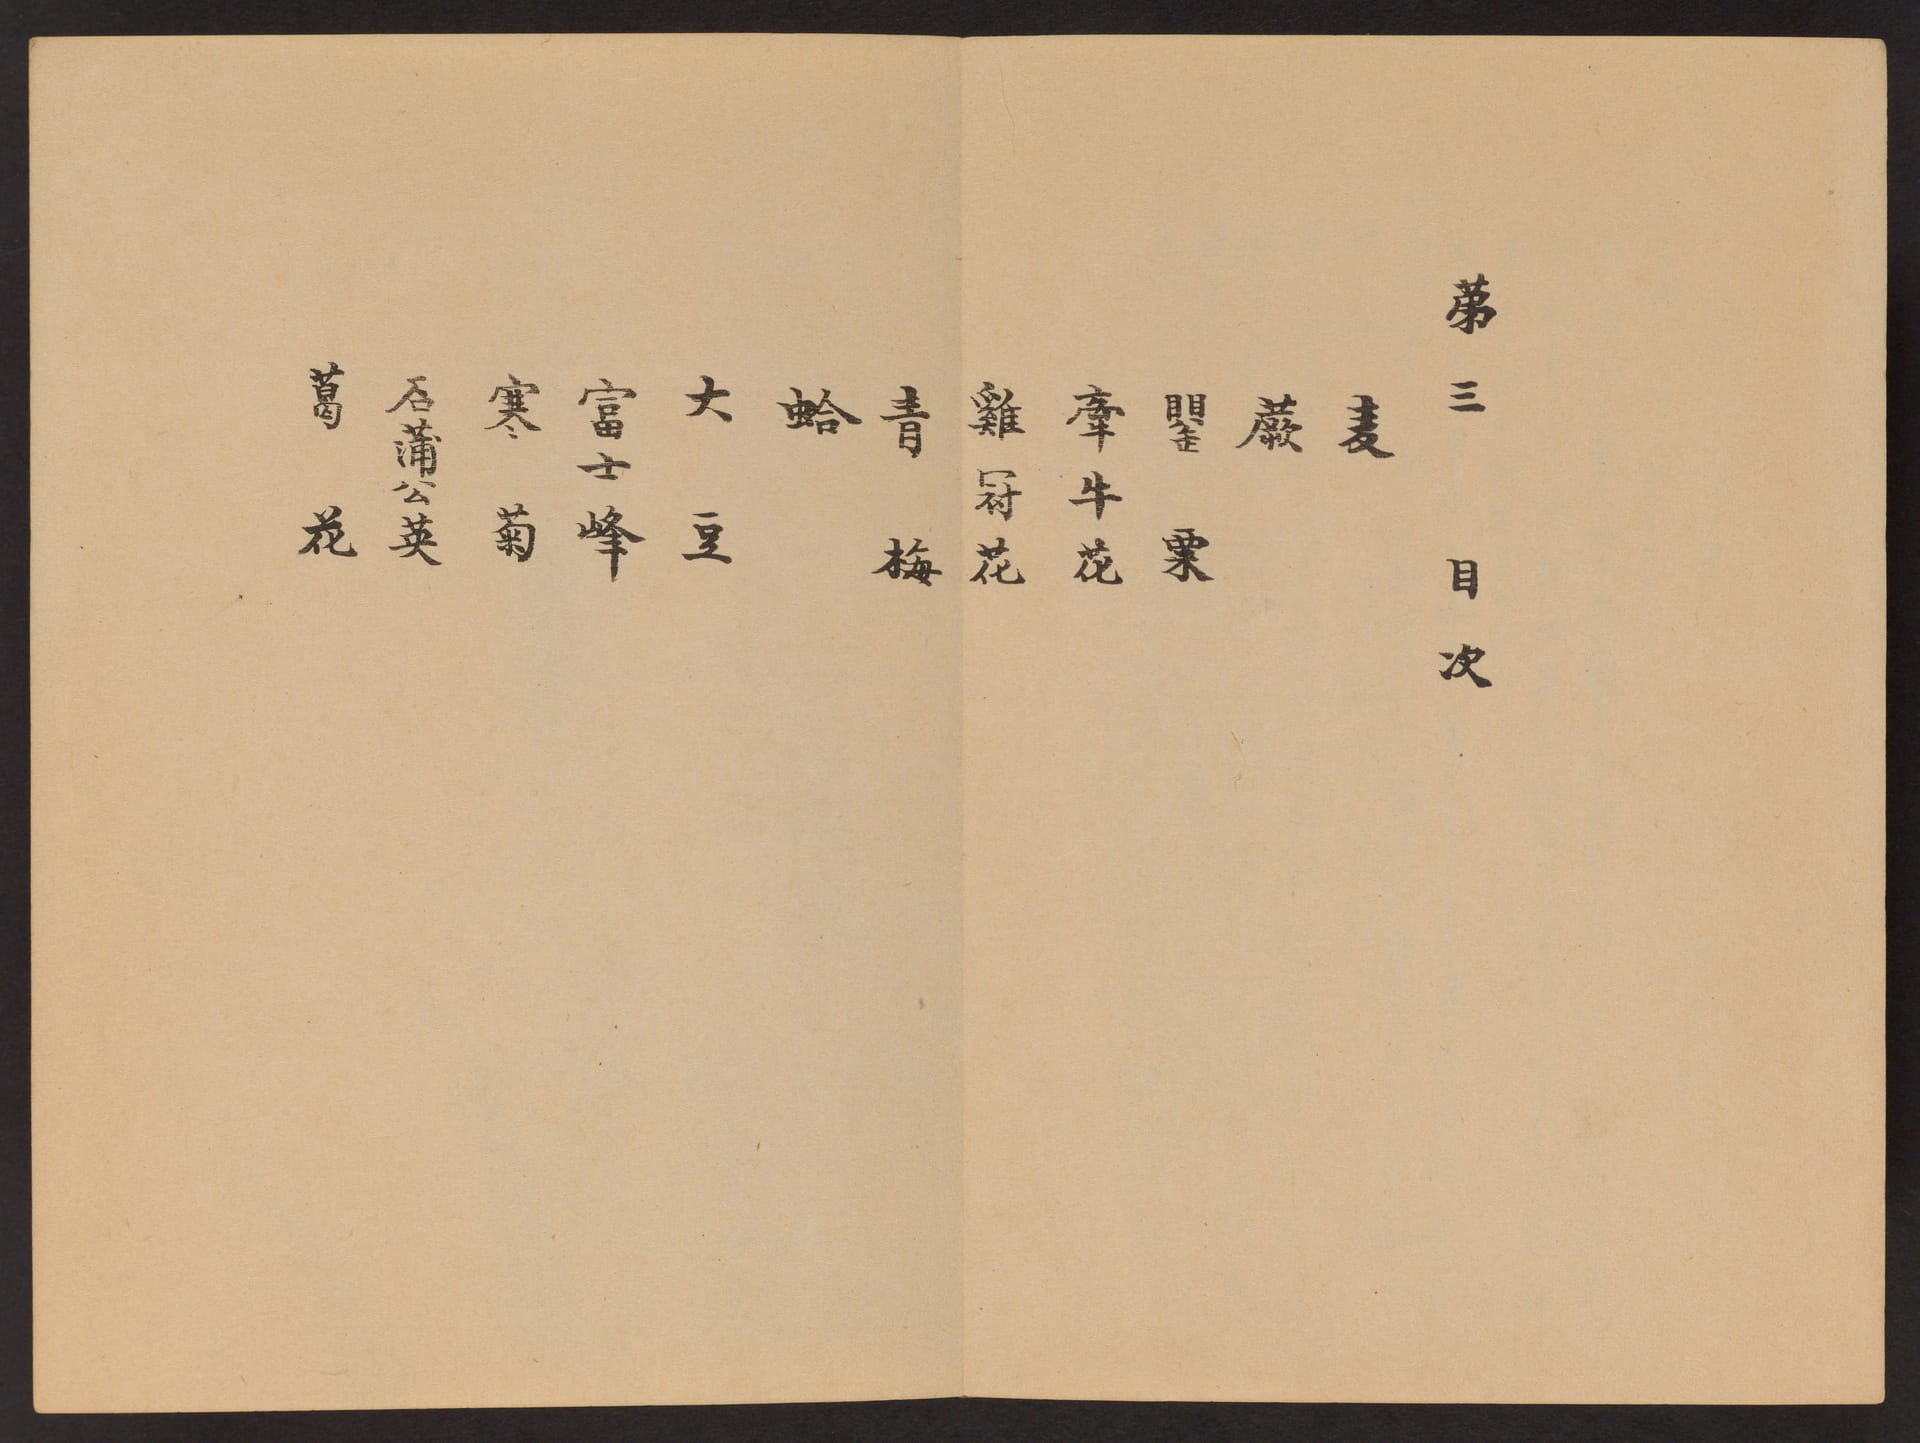 苐三 目次
麦
蕨
罌粟
牽牛花
雞冠花
青梅
蛤
大豆
富士峰
寒菊
石蒲公英
葛花